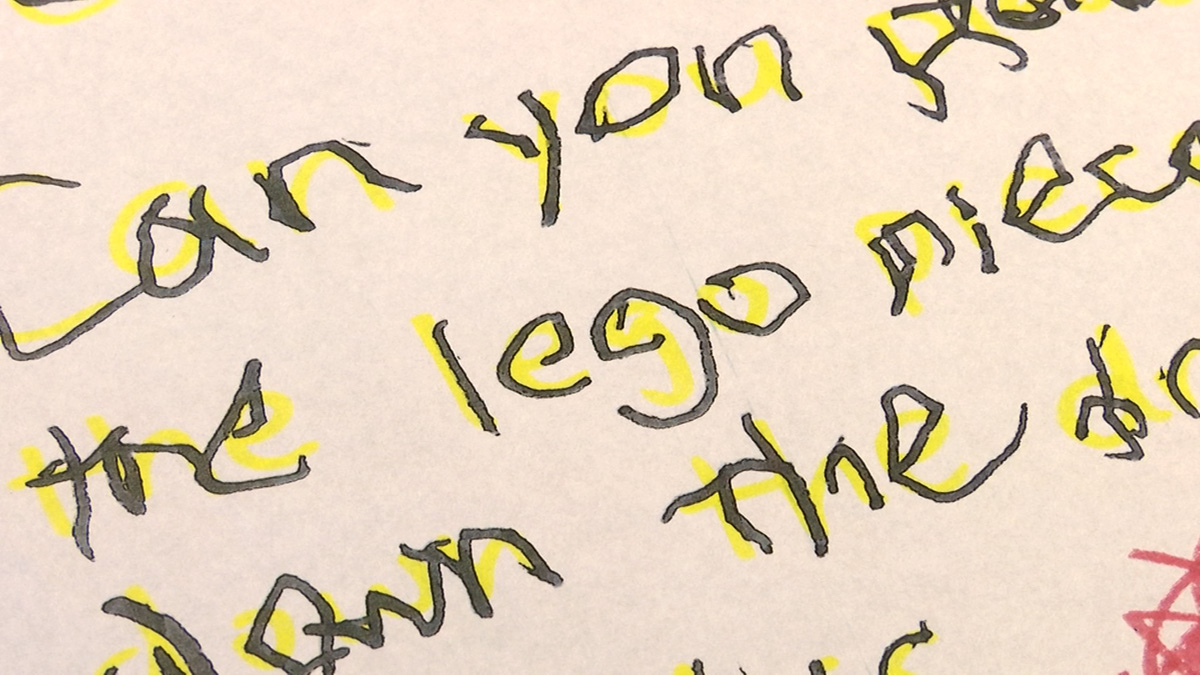 Can you
the lego piece
down the